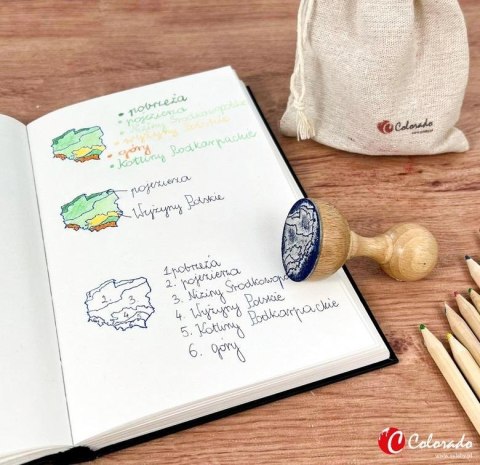 • pobrzeża
• pojezierza
• Niziny Środkowopolskie
• Wyżyny Polskie
• góry
• Kotliny Podkarpackie
pojezierza
Wyżyny Polskie
1. pobrzeża
2. pojezierza
3. Niziny Środkowopol
4. Wyżyny Polskie
5. Kotliny Podkarpackie
6. góry
1. 2. 3. 4.
Colorado
Colorado